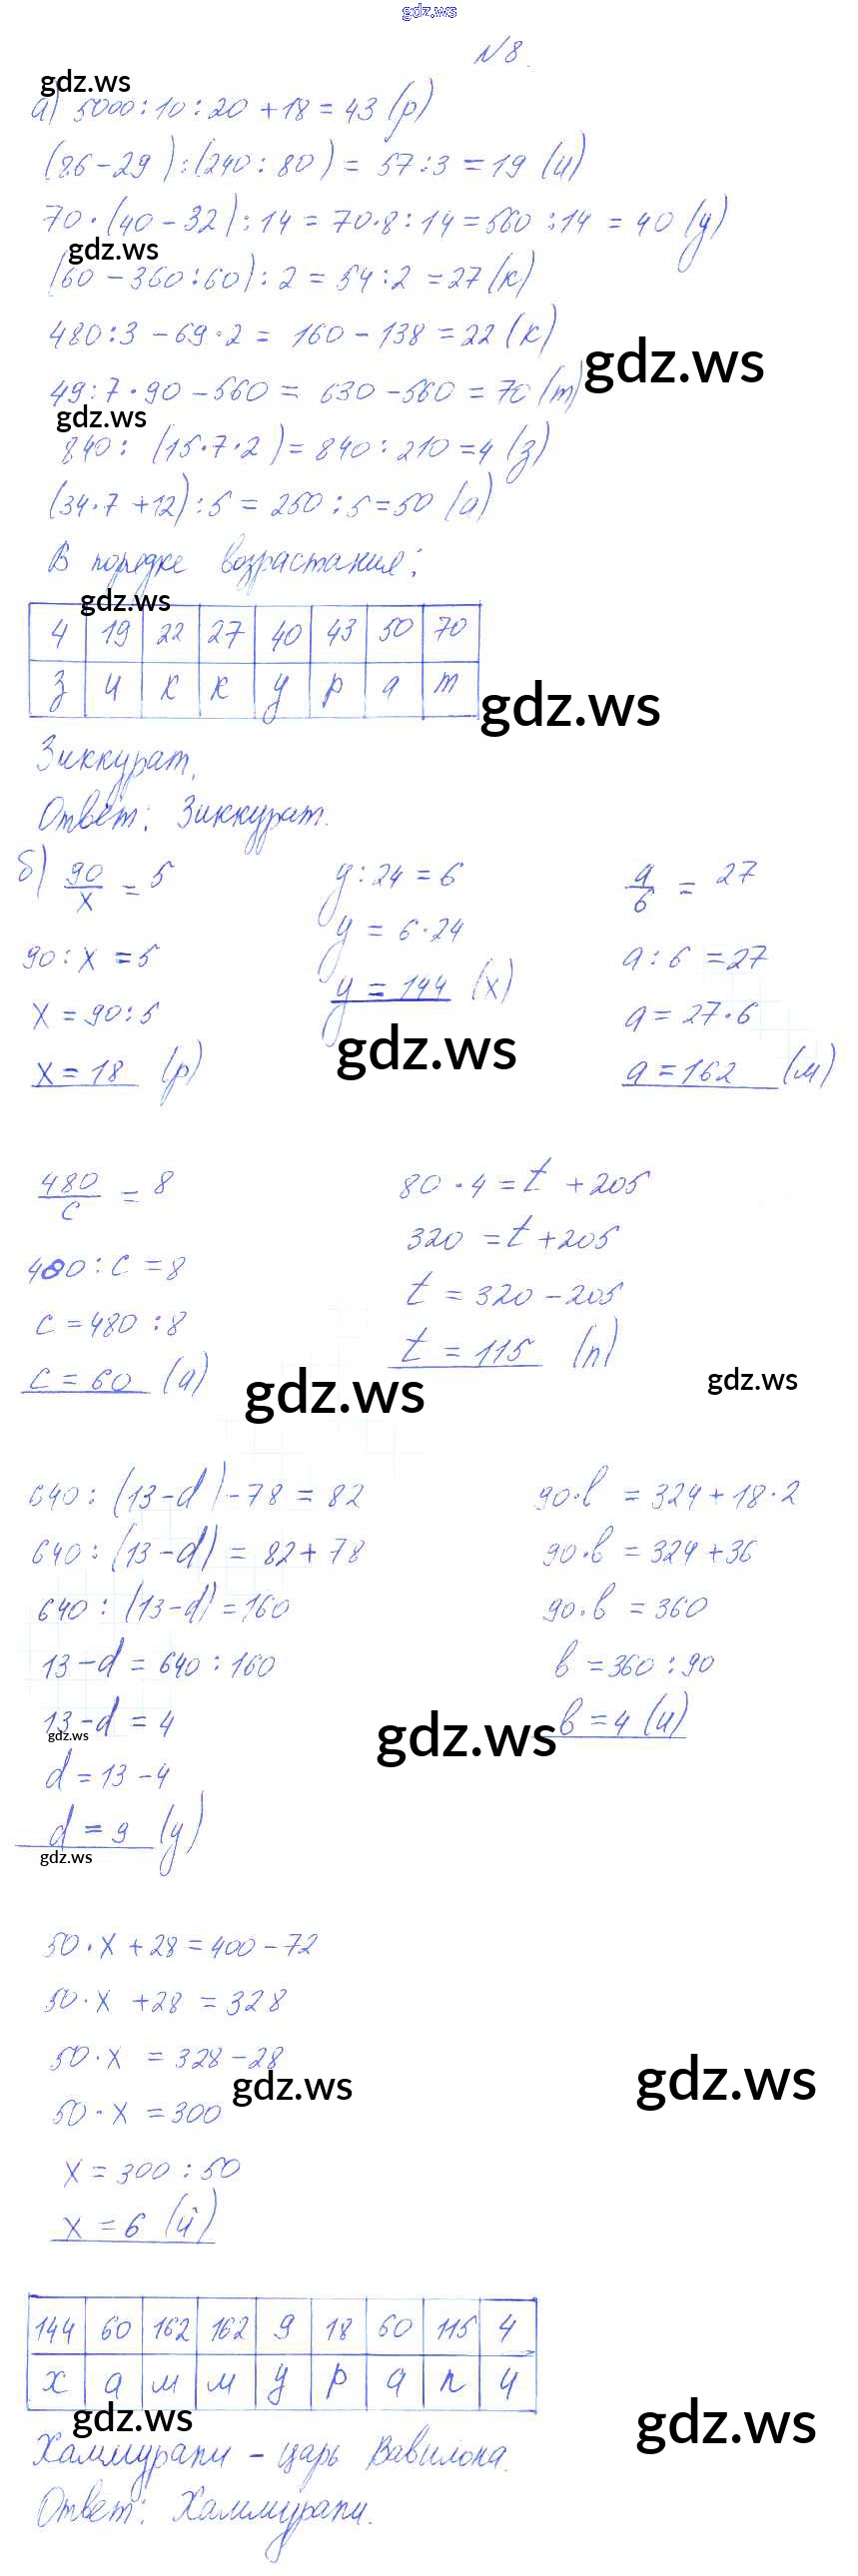 gdz.ws
№8.
gdz.ws
а) 5000:10:20+18=43 (р)
(86-29):(240:80)=57:3=19 (и)
70·(40-32):14=70·8:14=560:14=40 (у)
gdz.ws
(60-360:60):2=54:2=27 (к)
480:3-69·2=160-138=22 (к)
gdz.ws
49:7·90-560=630-560=70 (т)
gdz.ws
840:(15·7·2)=840:210=4 (з)
(34·7+12):5=250:5=50 (а)
В порядке возрастания:
gdz.ws
4 19 22 27 40 43 50 70
з и к к у р а т
gdz.ws
Зиккурат.
Ответ: Зиккурат.
б) 90/x = 5
90:x=5
x=90:5
x=18 (р)
y:24=6
y=6·24
y=144 (х)
gdz.ws
a/6 = 27
a:6=27
a=27·6
a=162 (м)
480/c = 8
480:c=8
c=480:8
c=60 (а)
80·4=t+205
320=t+205
t=320-205
t=115 (п)
gdz.ws
gdz.ws
640:(13-d)-78=82
640:(13-d)=82+78
640:(13-d)=160
13-d=640:160
13-d=4
gdz.ws
d=13-4
d=9 (у)
gdz.ws
90·b=324+18·2
90·b=324+36
90·b=360
b=360:90
b=4 (и)
gdz.ws
50·x+28=400-72
50·x+28=328
50·x=328-28
gdz.ws
gdz.ws
50·x=300
x=300:50
x=6 (й)
144 60 162 162 9 18 60 115 4
х а м м у р а п и
gdz.ws
gdz.ws
Хаммурапи - царь Вавилона.
Ответ: Хаммурапи.